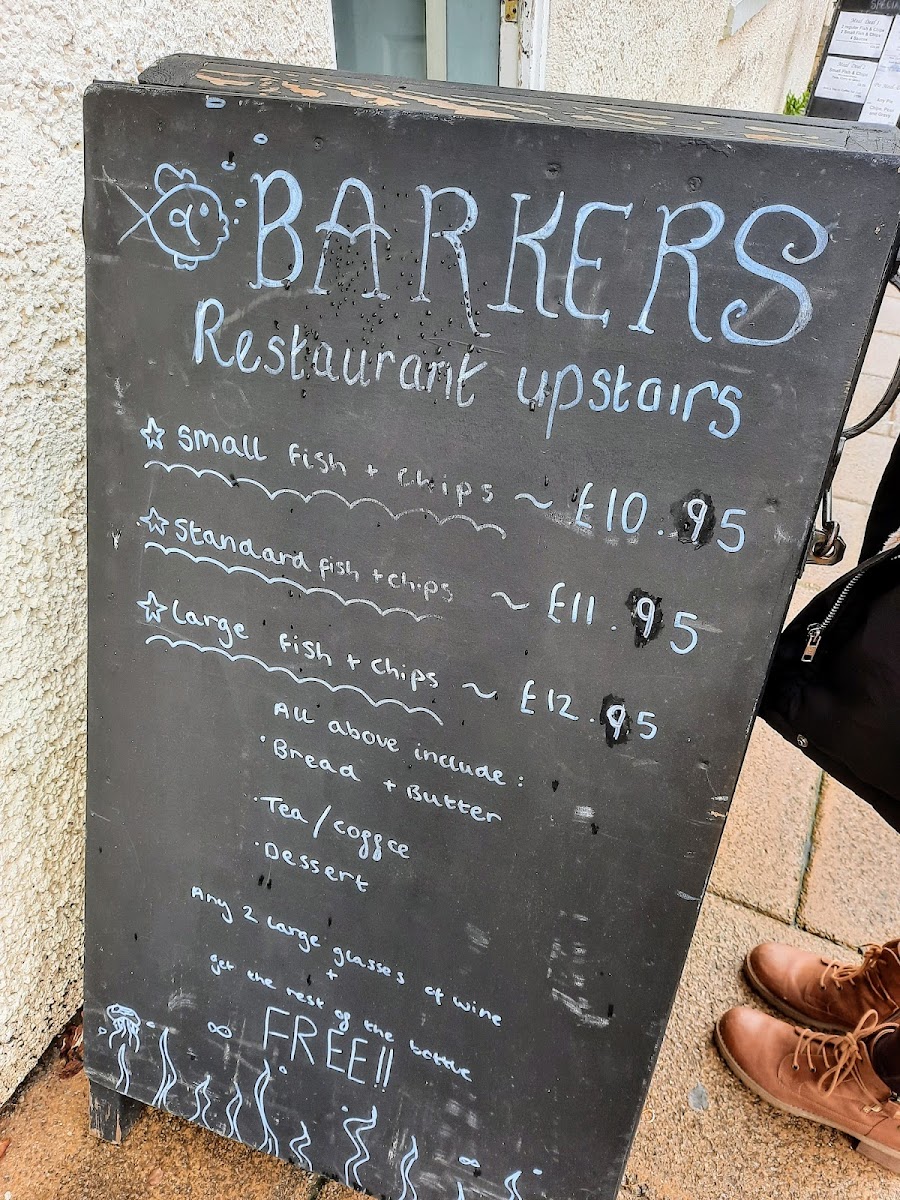 BARKERS
Restaurant upstairs
small fish + chips ~ £10.95
standard fish + chips ~ £11.95
Large fish + chips ~ £12.95
All above include:
· Bread + Butter
· Tea/coffee
· Dessert
Any 2 Large glasses of wine
+
get the rest of the bottle
FREE!!
SPECIA
Small Fish & Chips